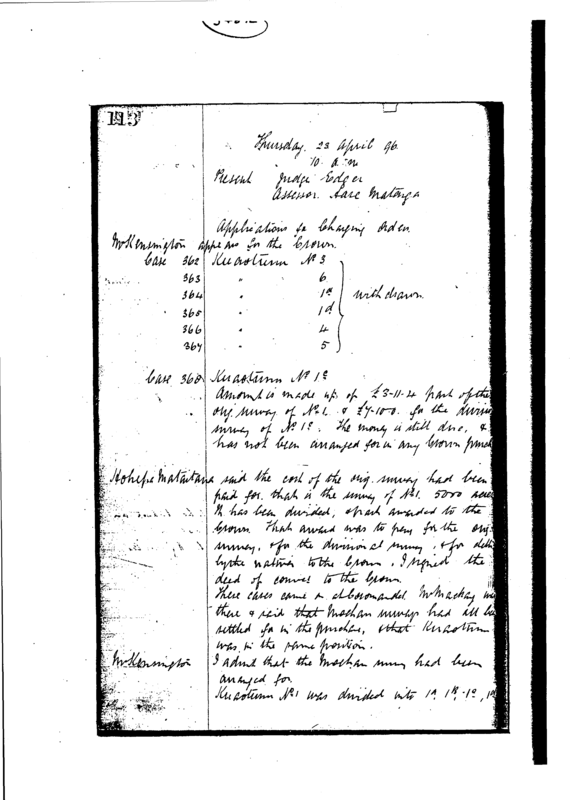 113
Thursday. 23 April 96
10 a.m
Present Judge Edger
Assessor. Aare Matanga
Applications for Charging Orders
Mr Kensington appears for the Crown.
Case 362 Kuaotunu No 3
363 " 6
364 " 1a
365 " 1d withdrawn
366 " 4
367 " 5
Case 368 Kuaotunu No 1c
Amount is made up of £3-11-4 part of the
orig. survey of No 1. & £7-10-0. for the
survey of No 1c. The money is still due, &
has not been arranged for in any Crown
said the cost of the orig. survey had been
paid for. that is the survey of No 1. 5000
It has been divided, & part awarded to the
Crown. That award was to pay for the orig.
survey, & for the divisional survey, & for
by the natives to the Crown. I signed the
deed of to the Crown.
These cases came on at Coromandel Mr Mackay
there & said that surveys had all
settled for in the purchase, & that Kuaotunu
was in the same position.
Mr Kensington I admit that the survey had been
arranged for
Kuaotunu No 1 was divided into 1a, 1b, 1c, 1d